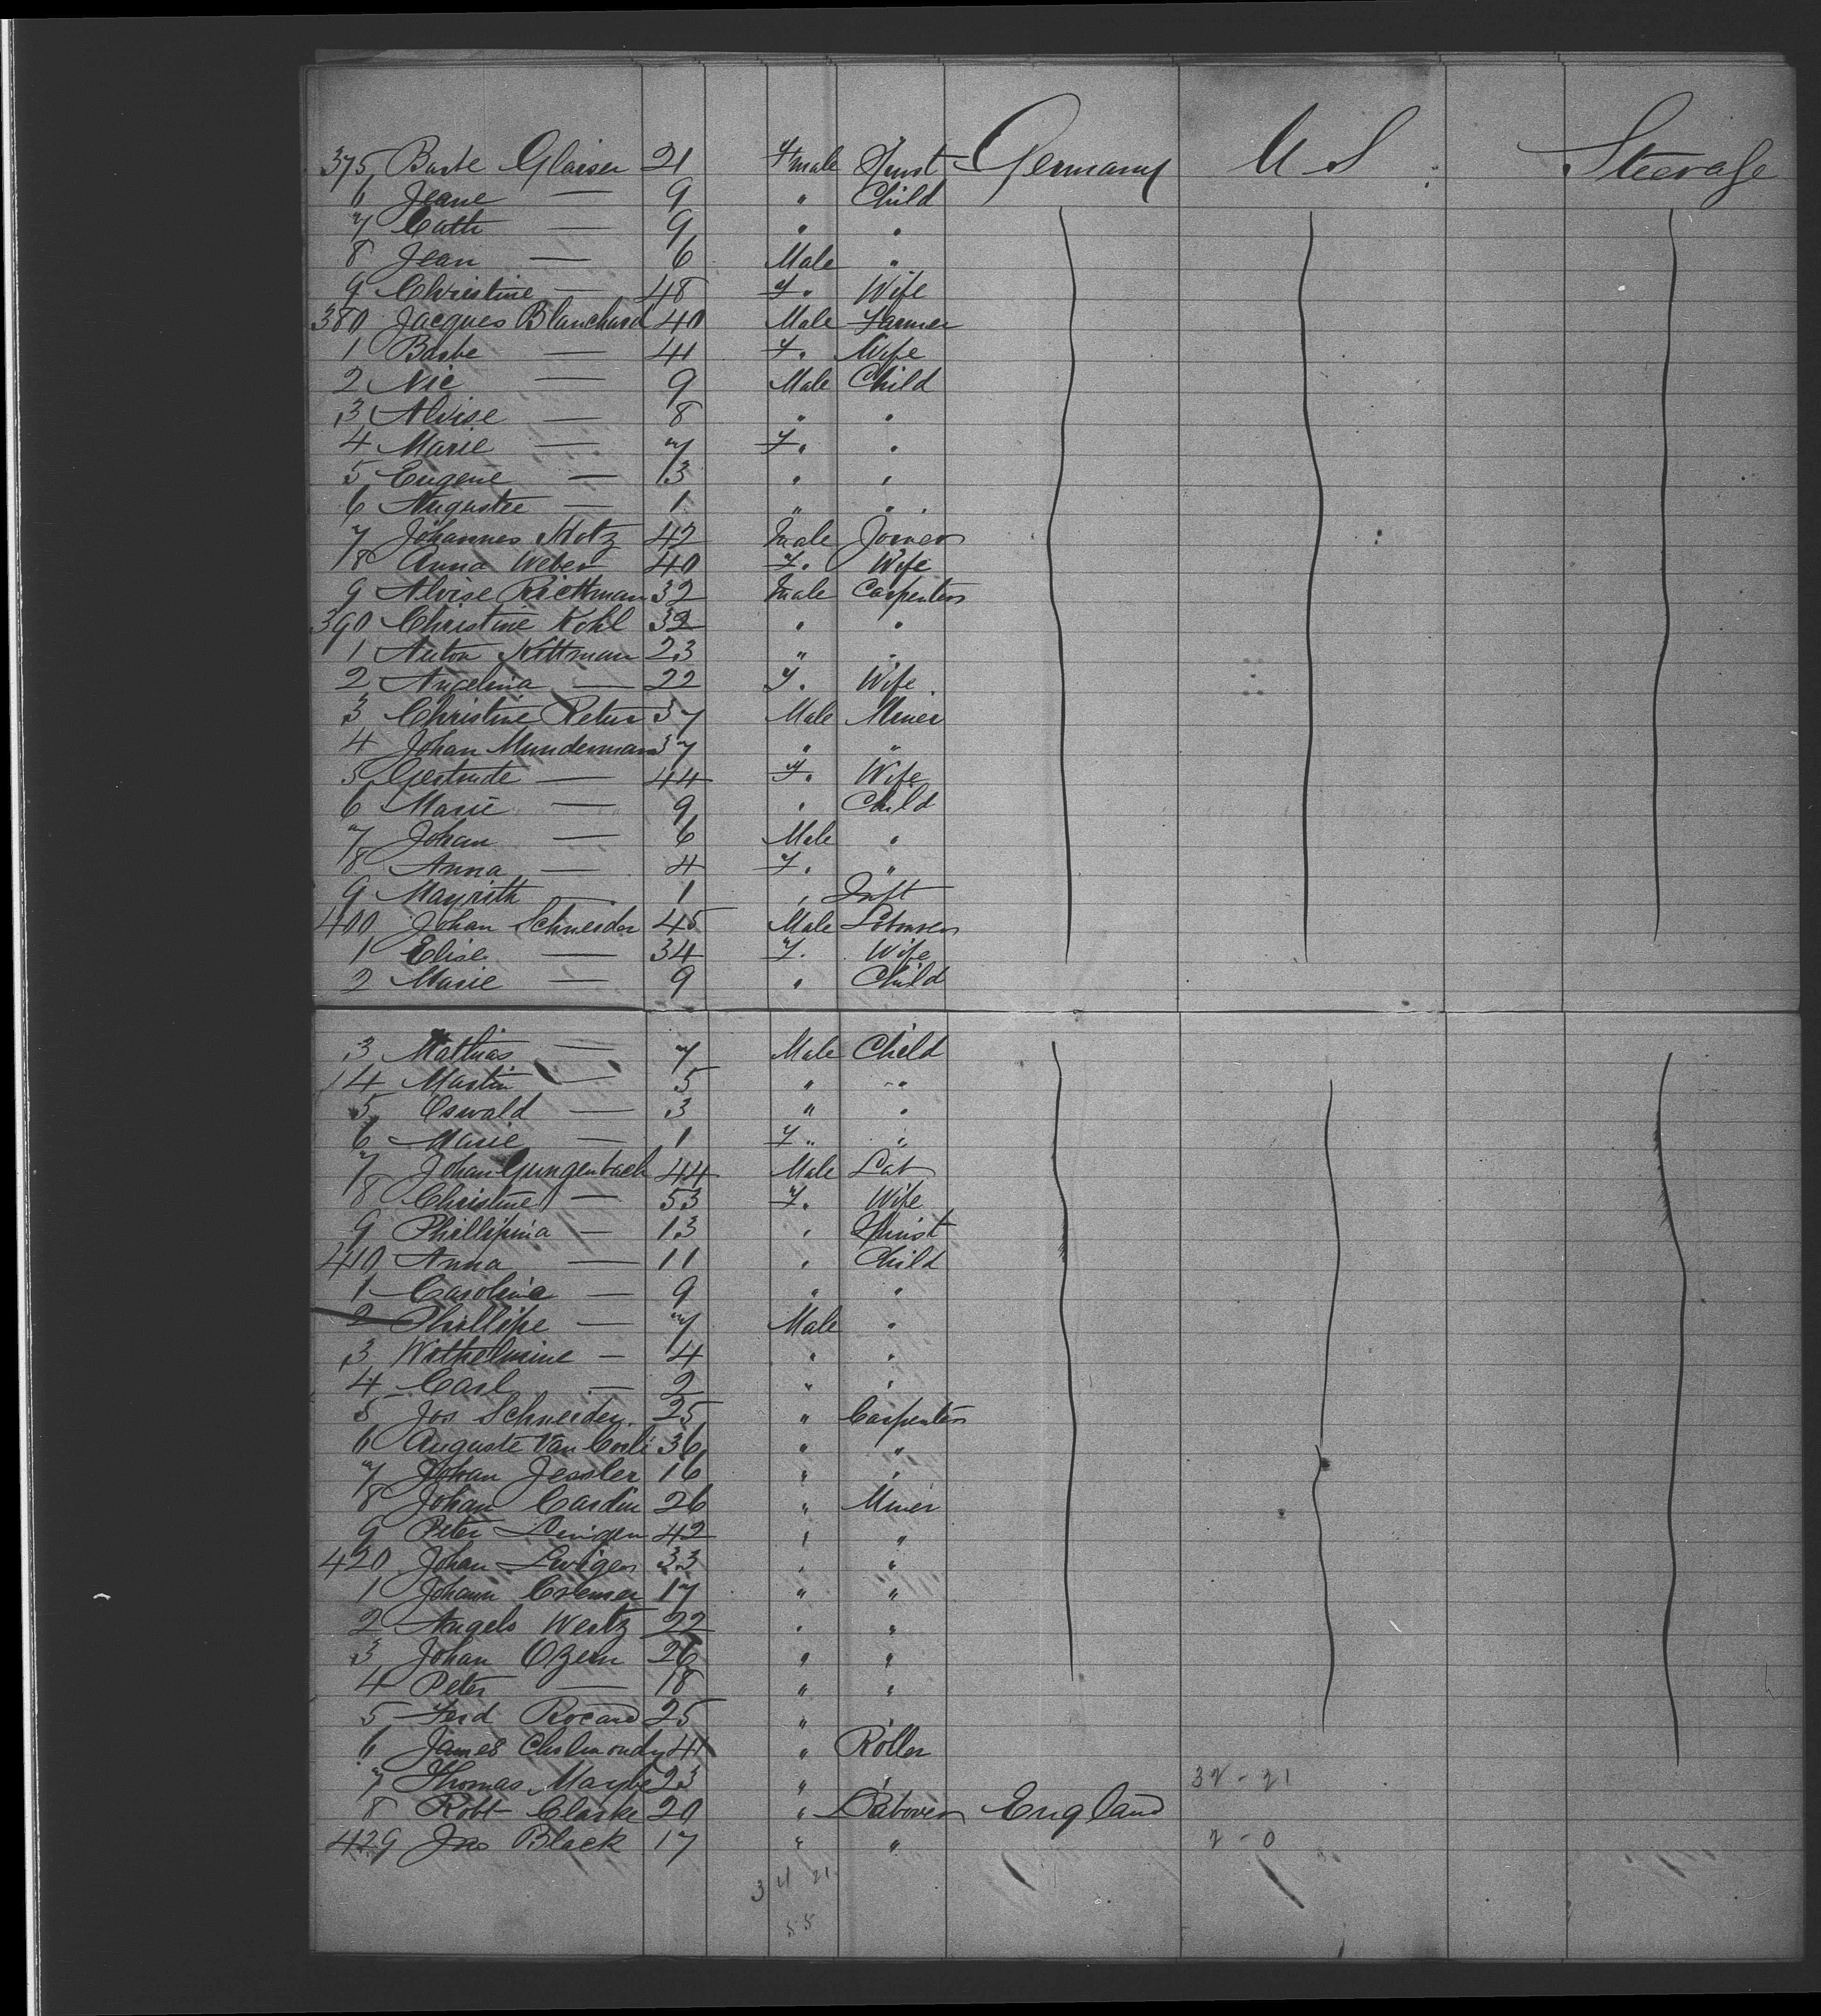 375 Barbe Glaiser 21 Female Spinst Germany U S Steerage
6 Jeane — 9 " Child
7 Cath — 9 " "
8 Jean — 6 Male "
9 Christine — 48 F. Wife
380 Jacques Blanchard 40 Male Farmer
1 Barbe — 41 F. Wife
2 Nic — 9 Male Child
3 Aloise — 8 " "
4 Marie — 7 F. "
5 Eugene — 13 " "
6 Auguste — 1 " "
7 Johannes Motz 42 Male Joiner
8 Anna Weber 40 F. Wife
9 Aloise Riettman 32 Male Carpenter
390 Christine Kohl 32 " "
1 Anton Kittman 23 " "
2 Angelina — 22 F. Wife
3 Christine Peter 37 Male Miner
4 Johan Munderman 37 " "
5 Gertrude — 44 F. Wife
6 Marie — 9 " Child
7 Johan — 6 Male "
8 Anna — 4 F. "
9 Mayrith — 1 " Inft
400 Johan Schneider 45 Male Labourer
1 Elise — 34 F. Wife
2 Marie — 9 " Child
3 Mathias — 7 Male Child
4 Martin — 5 " "
5 Oswald — 3 " "
6 Marie — 1 F. "
7 Johan Gungenbach 44 Male Lab
8 Christine — 53 F. Wife
9 Phillipina — 13 " Spinst
410 Anna — 11 " Child
1 Caroline — 9 " "
2 Phillipe — 7 Male "
3 Wilhelmine — 4 " "
4 Carl — 2 " "
5 Jos Schneider. 25 " Carpenter
6 Auguste Van 36 " "
7 Johan Jessler 16 " "
8 Johan Cardin 26 " Miner
9 Peter 42 " "
420 Johan 33 " "
1 Johann Cremer 17 " "
2 Angels Wertz 22 " "
3 Johan Ozem 26 " "
4 Peter — 18 " "
5 Ferd Rocard 25 " "
6 James Cholmondy 41 " Roller
7 Thomas Maybe 23 " " 32 - 21
8 Robt Clarke 20 " Labourer England
429 Jno Black 17 " " 2 - 0
34 21
55